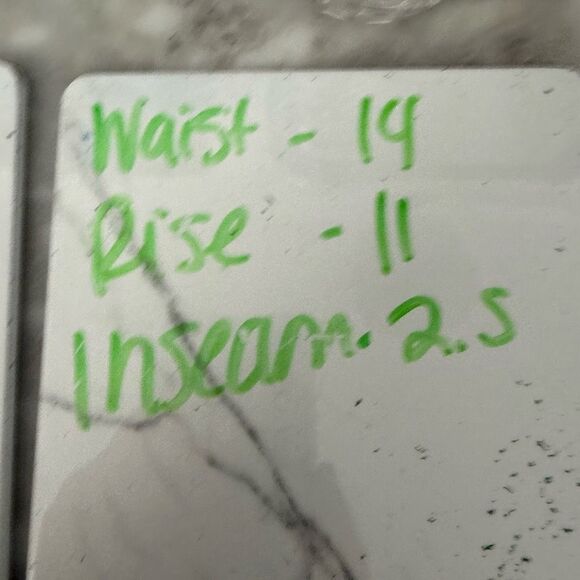 Waist - 14
Rise - 11
Inseam. 2.5